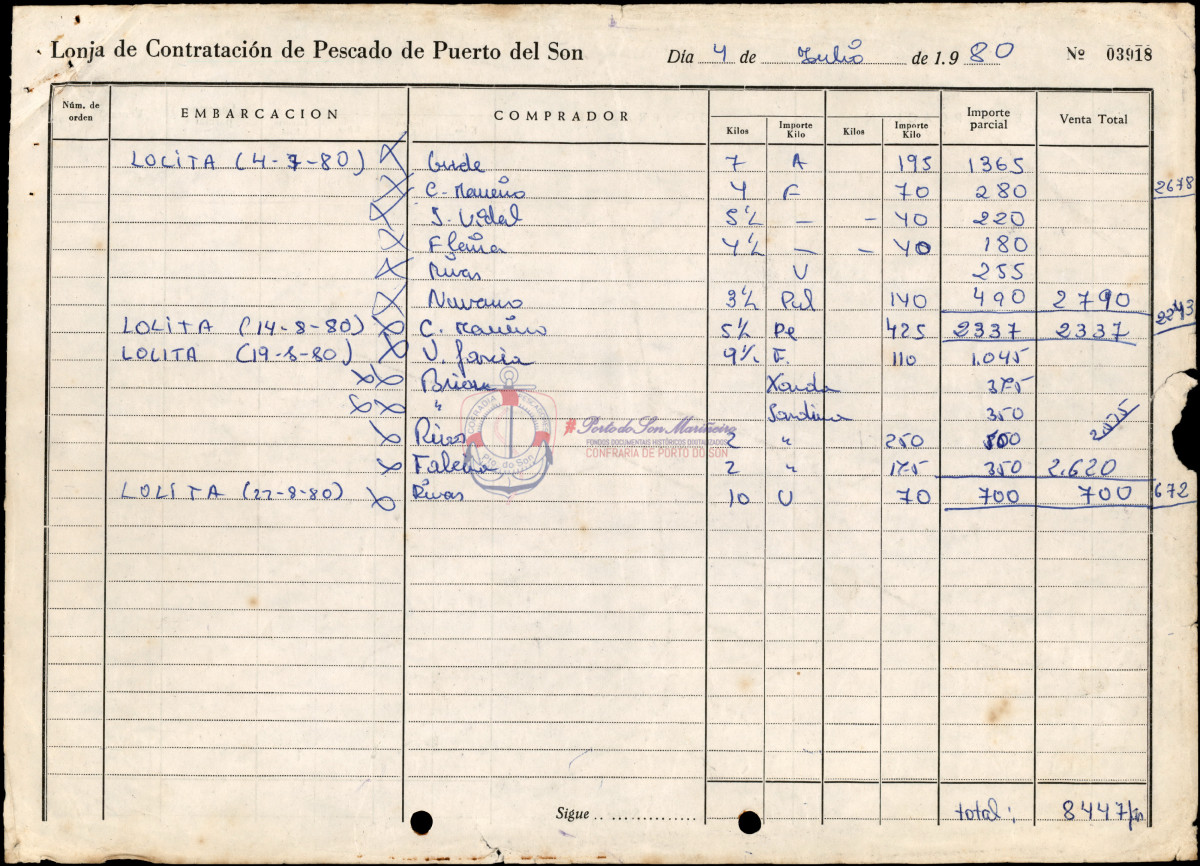 Lonja de Contratación de Pescado de Puerto del Son Día 4 de Julio de 1.9 80 Nº 03918
Núm. de orden EMBARCACION COMPRADOR Kilos Importe Kilo Kilos Importe Kilo Importe parcial Venta Total
LOLITA (4-7-80) 7 A 195 1365
C. 4 F 70 280 2678
J. Vidal 5½ — - 40 220
4½ — - 40 180
Rivas U 255
3½ Pul 140 490 2790
LOLITA (14-8-80) C. 5½ Pe 425 2337 2337 2243
LOLITA (19-8-80) V. Garcia 9½ F. 110 1.045
Xarda 375
" Sardina 350
Rivas 2 " 250 500
2 " 175 350 2.620
LOLITA (22-8-80) Rivas 10 U 70 700 700 672
COFRADIA PESCADORES
Pto. do Son
#Porto do Son Mariñeiro
FONDOS DOCUMENTAIS HISTÓRICOS DIXITALIZADOS
CONFRARIA DE PORTO DO SON
Sigue total: 8447